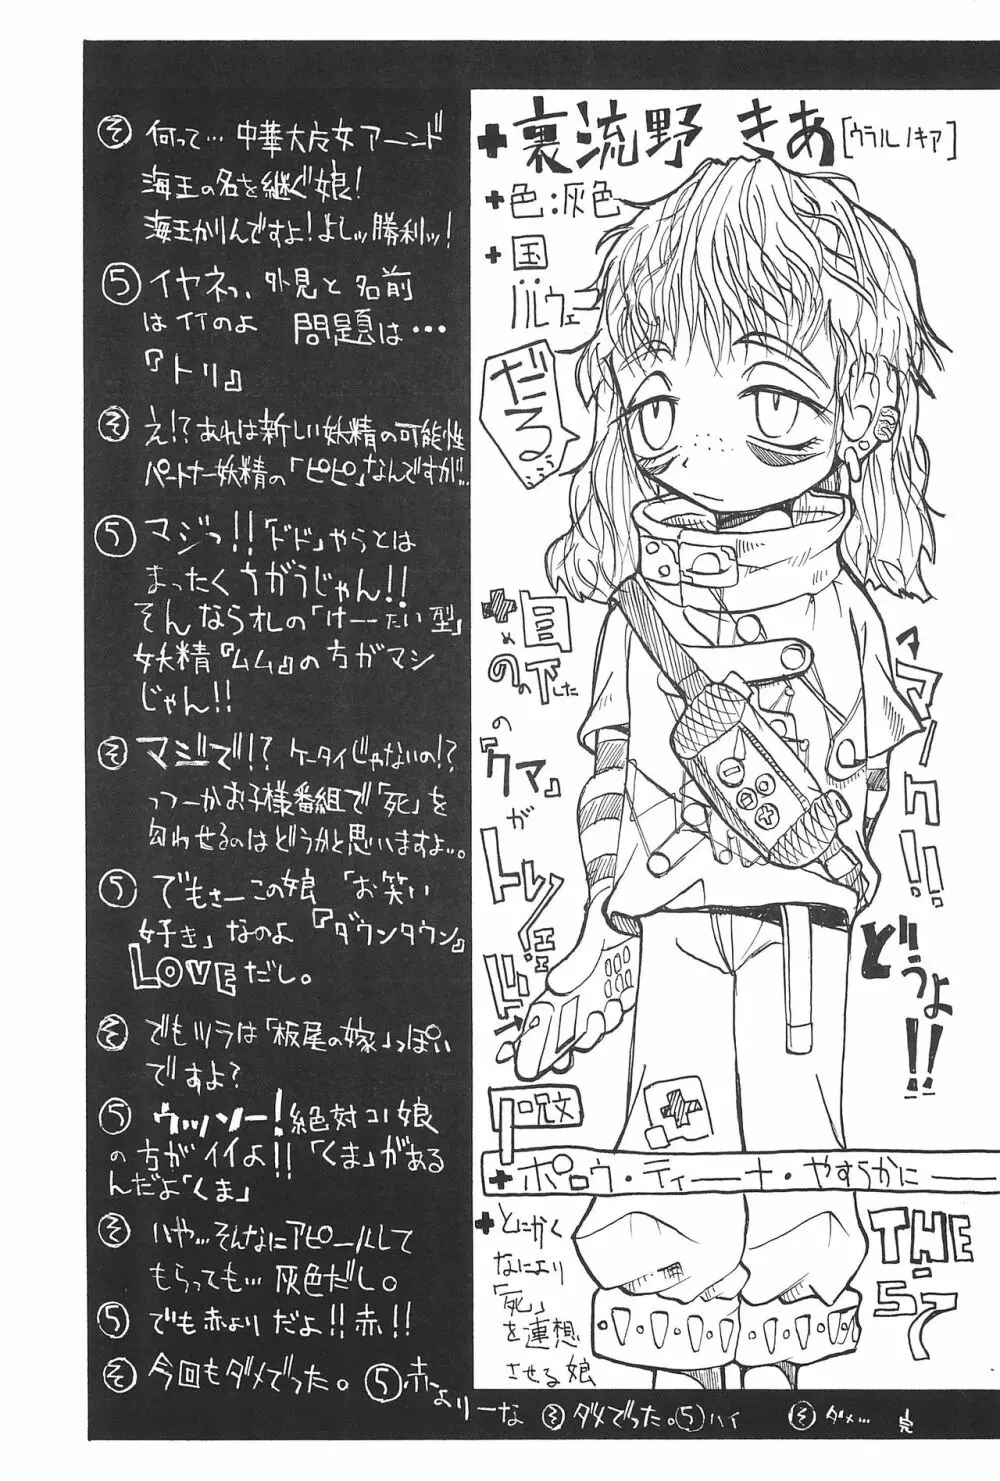 裏流野 きあ[ウラルノキア]
色:灰色
国
ノルウェー
だる…
マーク!!
どうよ!!
目の下の
『クマ』
が
トレードマーク!!
呪文
ポロウ・ティーナ・やすらかに
とにかく
なにより
「死」
を連想
させる娘
THE
57
そ 何って…中華大好女アーンド
海王の名を継ぐ娘!
海王かりんですよ!よしッ勝利ッ!
5 イヤネっ、外見と名前
はイイのよ 問題は…
『トリ』
そ え!?あれは新しい妖精の可能性
パートナー妖精の「ピピ」なんですが…
5 マジっ!!「ドド」やらとは
まったくちがうじゃん!!
そんならオレの「けーたい型」
妖精『ムム』の方がマシ
じゃん!!
そ マジで!?ケータイじゃないの!?
っつーかお子様番組で「死」を
匂わせるのはどうかと思いますよ…。
5 でもさーこの娘「お笑い
好き」なのよ『ダウンタウン』
LOVEだし。
そ でもツラは「板尾の嫁」っぽい
ですよ?
5 ウッソー!絶対コノ娘
の方がイイよ!!「くま」がある
んだよ「くま」
そ ハヤ…そんなにアピールして
もらっても…灰色だし。
5 でも赤よりだよ!!赤!!
そ 今回もダメでった。
5 赤よりーな
そ ダメでった。
5 ハイ
そ ダメ…
完